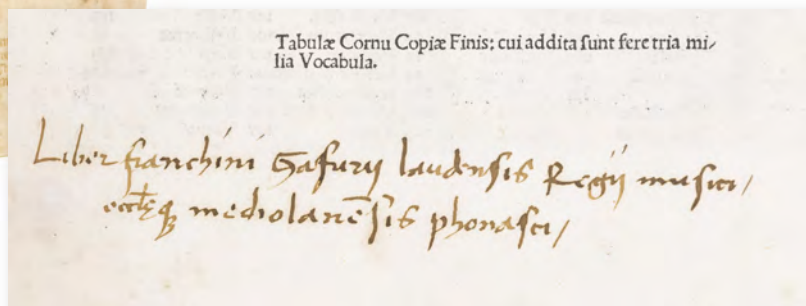 Tabulæ Cornu Copiæ Finis: cui addita sunt fere tria mi-
lia Vocabula.
Liber franchini Gafurÿ laudensis Regÿ musici/
ecclēq̨ mediolanēsis phonasci/